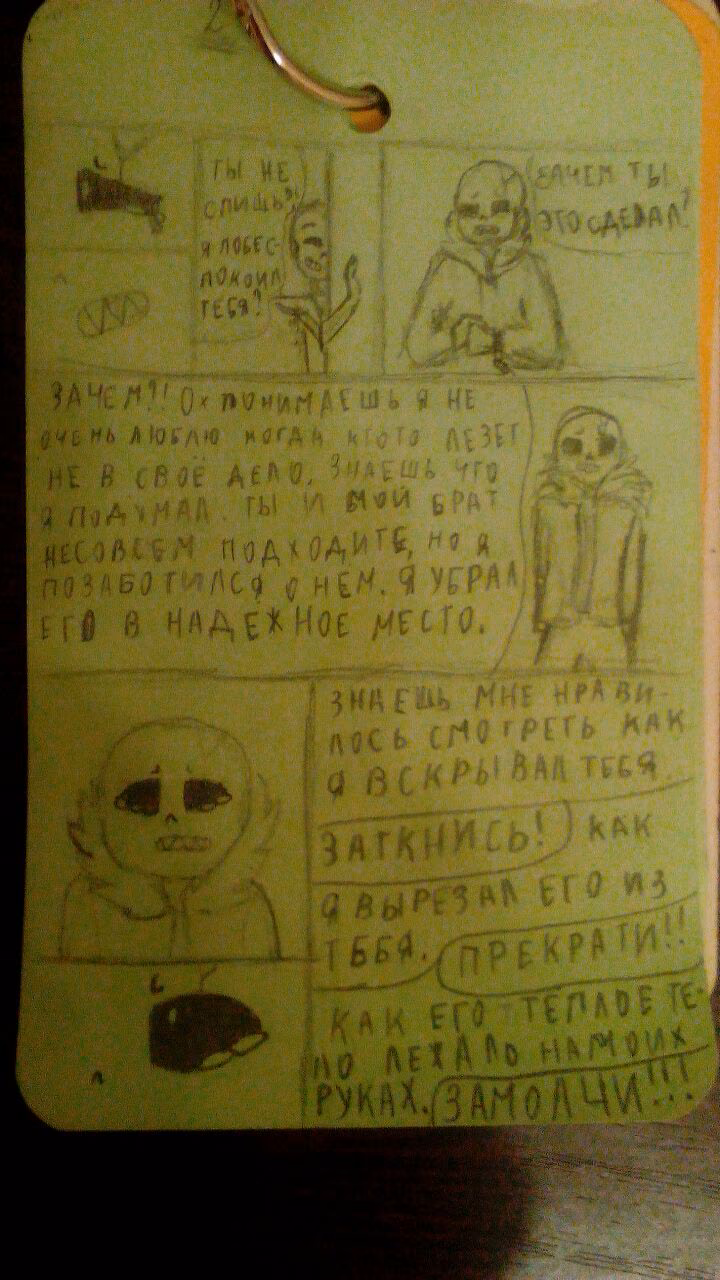 2
ТЫ НЕ
СПИШЬ?!
Я ПОБЕС-
ПОКОИЛ
ТЕБЯ?
ЗАЧЕМ ТЫ
ЭТО СДЕЛАЛ?
ЗАЧЕМ?! ОХ ПОНИМАЕШЬ Я НЕ
ОЧЕНЬ ЛЮБЛЮ КОГДА КТОТО ЛЕЗЕТ
НЕ В СВОЁ ДЕЛО. ЗНАЕШЬ ЧТО
Я ПОДУМАЛ. ТЫ И МОЙ БРАТ
НЕСОВСЕМ ПОДХОДИТЕ, НО Я
ПОЗАБОТИЛСЯ О НЕМ. Я УБРАЛ
ЕГО В НАДЕЖНОЕ МЕСТО.
ЗНАЕШЬ МНЕ НРАВИ-
ЛОСЬ СМОТРЕТЬ КАК
Я ВСКРЫВАЛ ТЕБЯ.
ЗАТКНИСЬ! КАК
Я ВЫРЕЗАЛ ЕГО ИЗ
ТЕБЯ. ПРЕКРАТИ!!
КАК ЕГО ТЕПЛОЕ ТЕ-
ЛО ЛЕЖАЛО НА МОИХ
РУКАХ. ЗАМОЛЧИ!!!